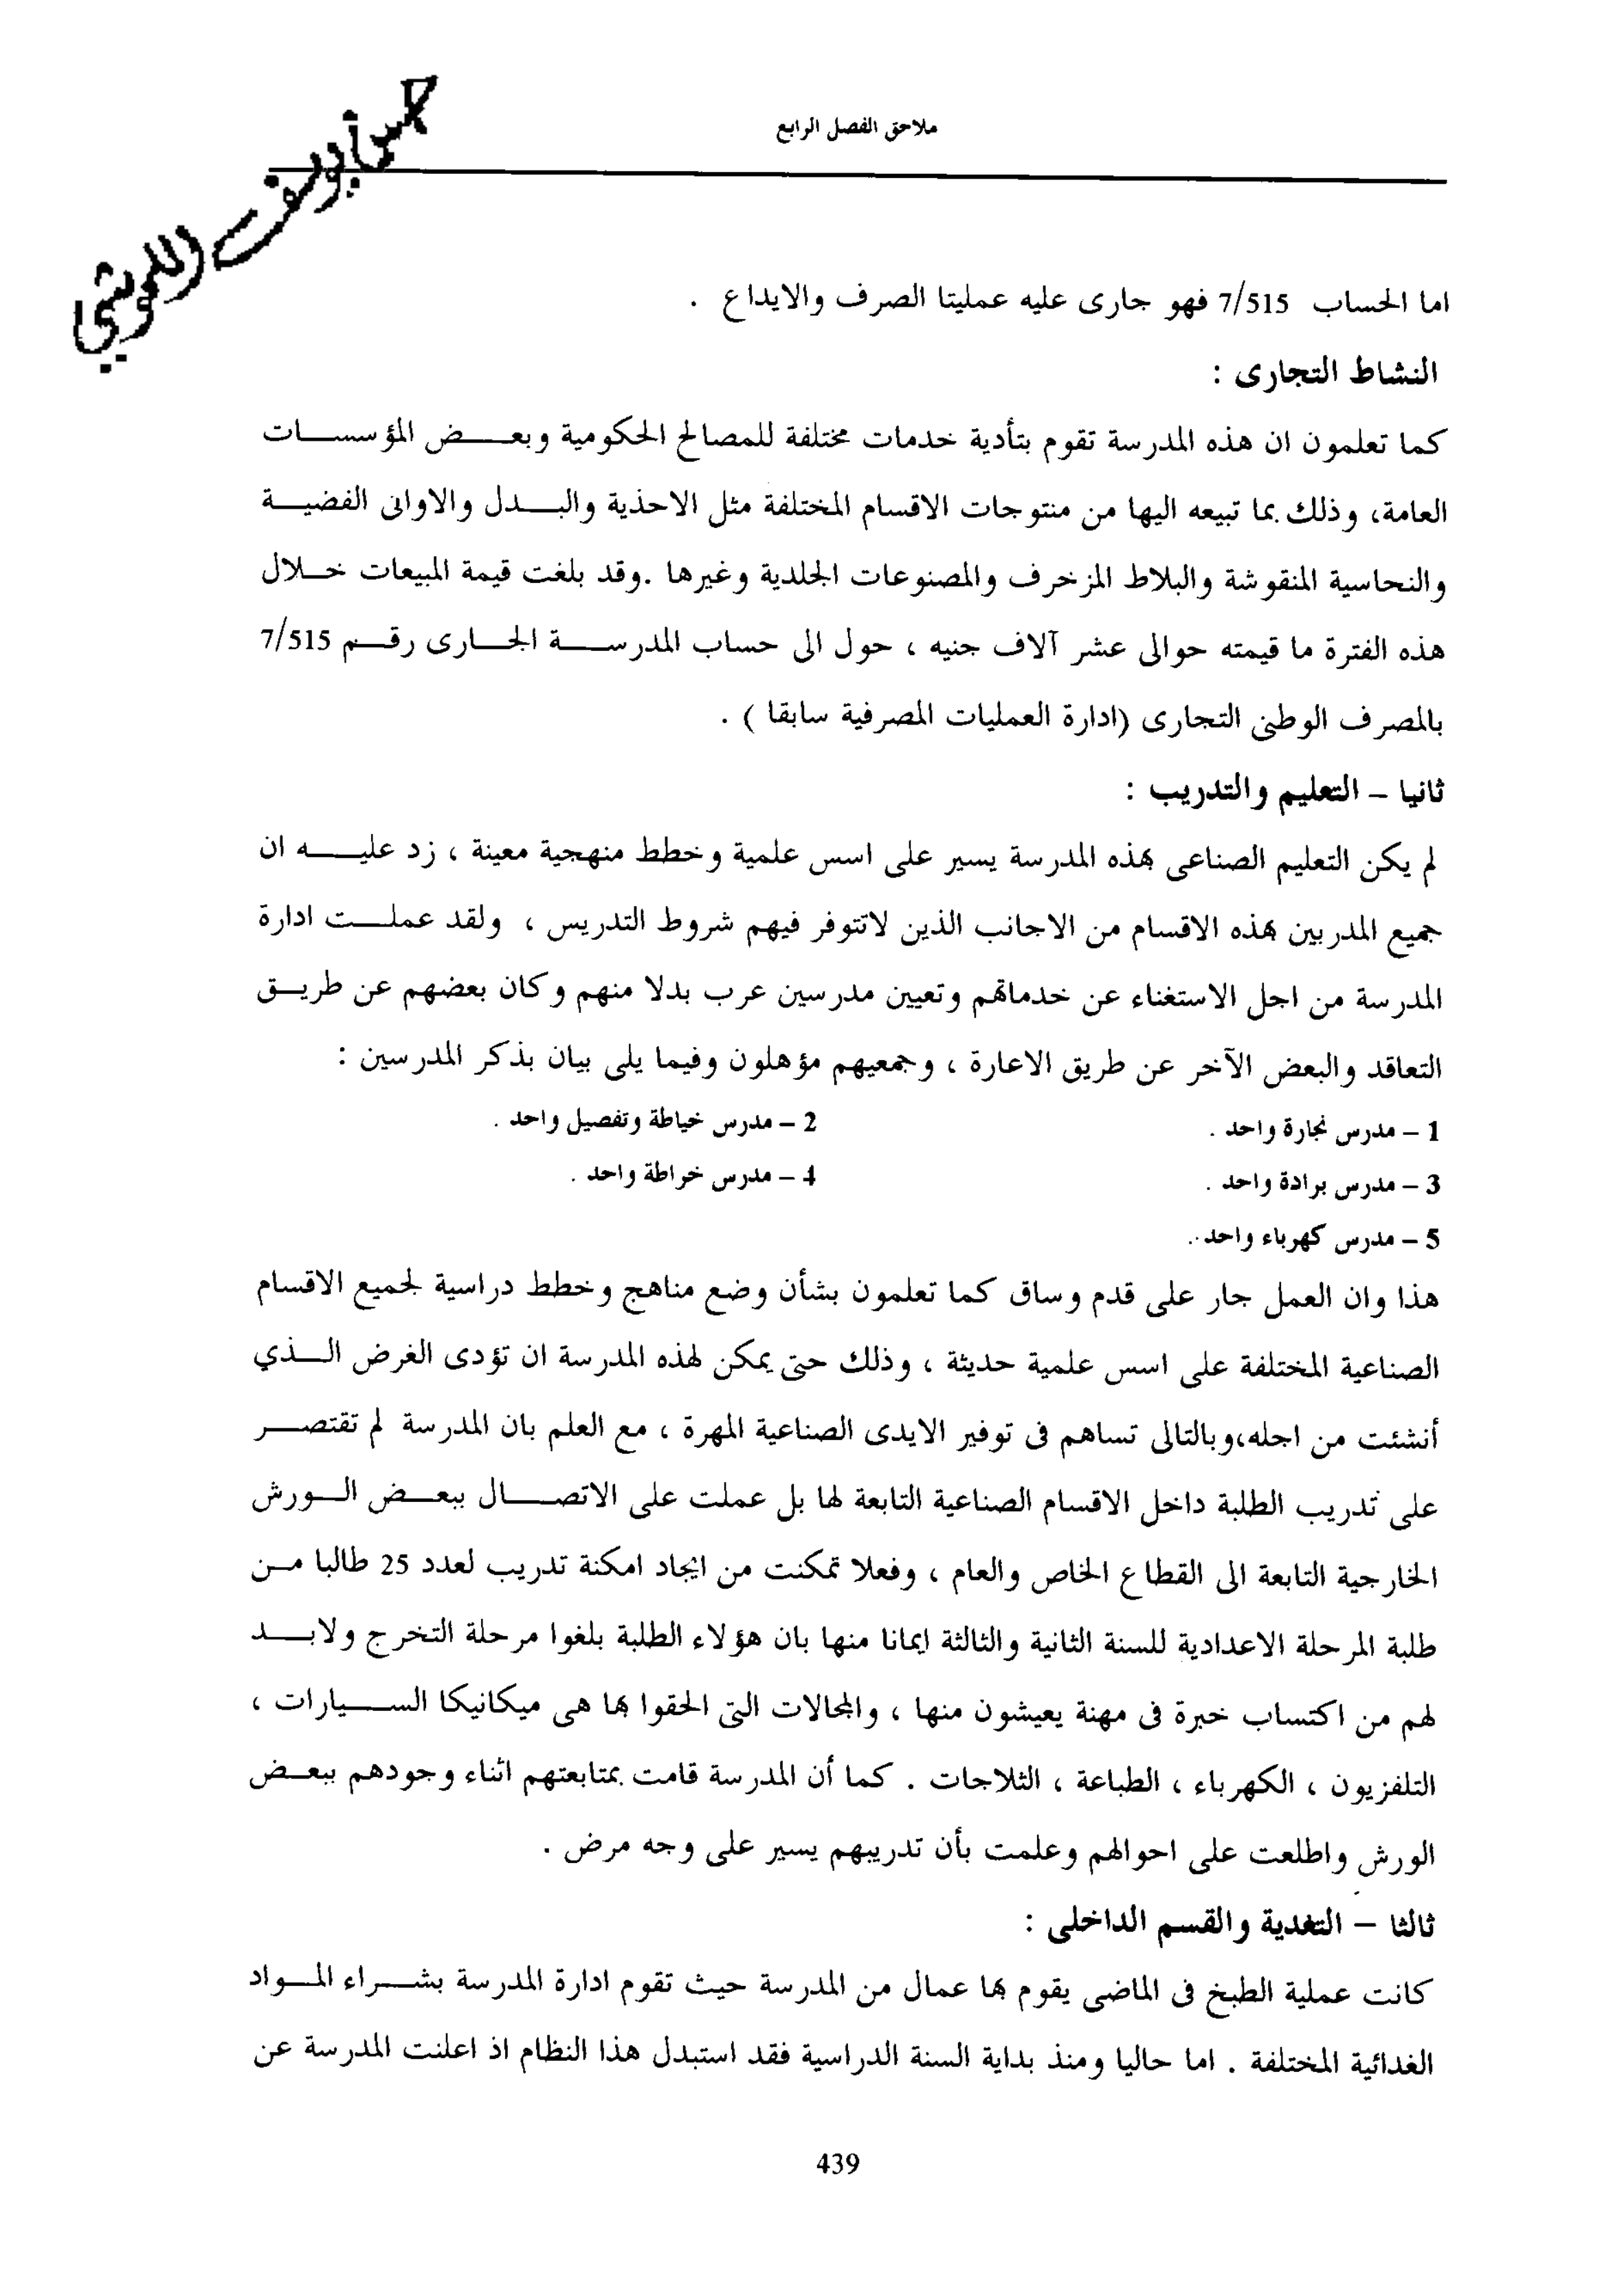 ملاحق الفصل الرابع
اما الحساب 7/515 فهو جارى عليه عمليتا الصرف والايداع .
النشاط التجارى :
كما تعلمون ان هذه المدرسة تقوم بتأدية خدمات مختلفة للمصالح الحكومية وبعض المؤسسات
العامة، وذلك بما تبيعه اليها من منتوجات الاقسام المختلفة مثل الاحذية والبدل والاوانى الفضية
والنحاسية المنقوشة والبلاط المزخرف والمصنوعات الجلدية وغيرها .وقد بلغت قيمة المبيعات خلال
هذه الفترة ما قيمته حوالى عشر آلاف جنيه ، حول الى حساب المدرسة الجارى رقم 7/515
بالمصرف الوطنى التجارى (ادارة العمليات المصرفية سابقا ) .
ثانيا – التعليم والتدريب :
لم يكن التعليم الصناعى بهذه المدرسة يسير على اسس علمية وخطط منهجية معينة ، زد عليه ان
جميع المدربين بهذه الاقسام من الاجانب الذين لاتتوفر فيهم شروط التدريس ، ولقد عملت ادارة
المدرسة من اجل الاستغناء عن خدماتهم وتعيين مدرسين عرب بدلا منهم وكان بعضهم عن طريق
التعاقد والبعض الآخر عن طريق الاعارة ، وجمعيهم مؤهلون وفيما يلى بيان بذكر المدرسين :
1 – مدرس نجارة واحد . 2 – مدرس خياطة وتفصيل واحد .
3 – مدرس برادة واحد . 4 – مدرس خراطة واحد .
5 – مدرس كهرباء واحد .
هذا وان العمل جار على قدم وساق كما تعلمون بشأن وضع مناهج وخطط دراسية لجميع الاقسام
الصناعية المختلفة على اسس علمية حديثة ، وذلك حتى يمكن لهذه المدرسة ان تؤدى الغرض الذي
أنشئت من اجله،وبالتالى تساهم فى توفير الايدى الصناعية المهرة ، مع العلم بان المدرسة لم تقتصر
على تدريب الطلبة داخل الاقسام الصناعية التابعة لها بل عملت على الاتصال ببعض الورش
الخارجية التابعة الى القطاع الخاص والعام ، وفعلا تمكنت من ايجاد امكنة تدريب لعدد 25 طالبا من
طلبة المرحلة الاعدادية للسنة الثانية والثالثة ايمانا منها بان هؤلاء الطلبة بلغوا مرحلة التخرج ولابد
لهم من اكتساب خبرة فى مهنة يعيشون منها ، والمجالات التى الحقوا بها هى ميكانيكا السيارات ،
التلفزيون ، الكهرباء ، الطباعة ، الثلاجات . كما أن المدرسة قامت بمتابعتهم اثناء وجودهم ببعض
الورش واطلعت على احوالهم وعلمت بأن تدريبهم يسير على وجه مرض .
ثالثا – التغدية والقسم الداخلى :
كانت عملية الطبخ فى الماضى يقوم بها عمال من المدرسة حيث تقوم ادارة المدرسة بشراء المواد
الغدائية المختلفة . اما حاليا ومنذ بداية السنة الدراسية فقد استبدل هذا النظام اذ اعلنت المدرسة عن
439